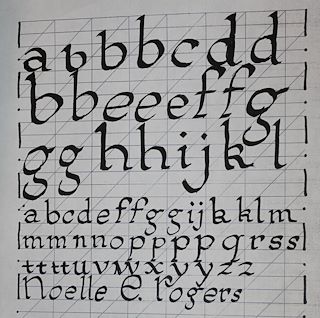 abbbcdd
bbeeeffg
gghhijkl
abcdeffggijkklm
mmnnoppppqrss
ttttuvwxyyzz
Noelle E. Rogers